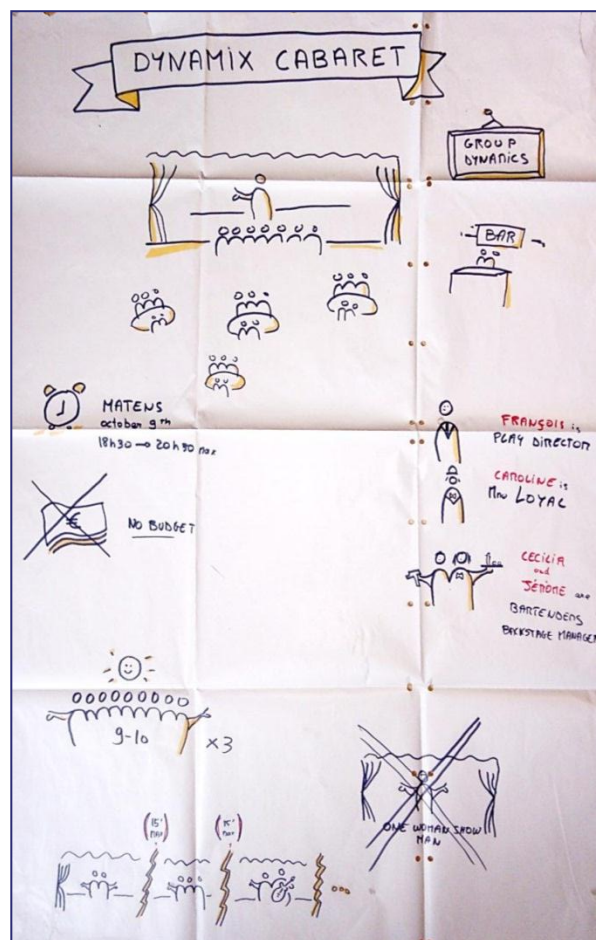 DYNAMIX CABARET
GROUP
DYNAMICS
BAR
MATENS
october 9th
18h30 → 20h30 max
€
NO BUDGET
FRANÇOIS is
PLAY DIRECTOR
CAROLINE is
LOYAL
CECILIA
and
JÉRÔME are
BARTENDERS
BACKSTAGE MANAGER
9-10
x3
15'
MAX
15'
MAX
ONE WOMAN SHOW
MAN